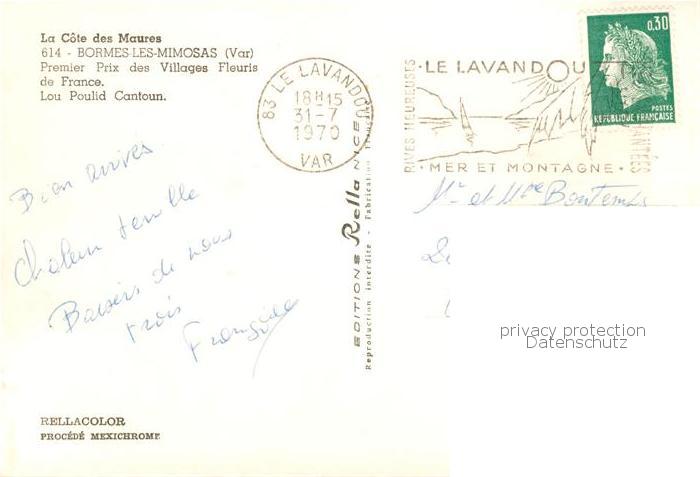 La Côte des Maures
614 - BORMES-LES-MIMOSAS (Var)
Premier Prix des Villages Fleuris
de France.
Lou Poulid Cantoun.
83 LE LAVANDOU
18H15
31-7
1970
VAR
RIVES HEUREUSES
· LE LAVANDOU
· MER ET MONTAGNE ·
0,30
POSTES
REPUBLIQUE FRANÇAISE
Bien arrivés
Chaleur terrible
Baisers de nous
trois
Françoise
EDITIONS Rella NICE
Reproduction interdite - Fabrication Française
Mr et Mme Bontemps
privacy protection
Datenschutz
RELLACOLOR
PROCÉDÉ MEXICHROME